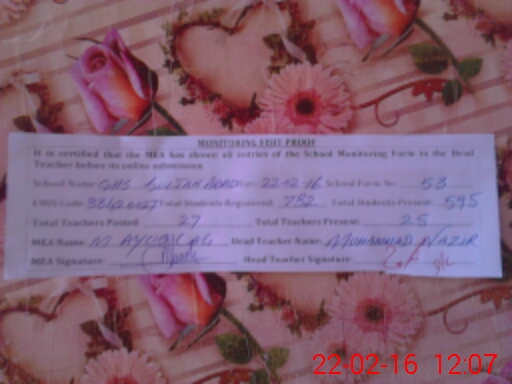 MONITORING VISIT PROOF
It is certified that the MEA has shown all entries of the School Monitoring Form to the Head
Teacher before its online submission
School Name: GHS SULTAN ABAD Date: 22-02-16 School Form No: 53
EMIS Code: Total Students Registered: 752 Total Students Present: 595
Total Teachers Posted: 27 Total Teachers Present: 25
MEA Name: M AYUB Head Teacher Name: MUHAMMAD NAZIR
MEA Signature: Head Teacher Signature:
22-02-16 12:07